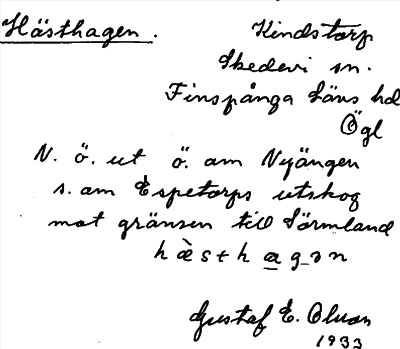 Hästhagen.
Kindstorp
Skedevi sn.
Finspånga läns hd
Ögl
N. ö. ut ö. am Nyängen
s. am Espetorps utskog
mot gränsen till Sörmland
hæ̀sthagən
Gustaf E. Olson
1933